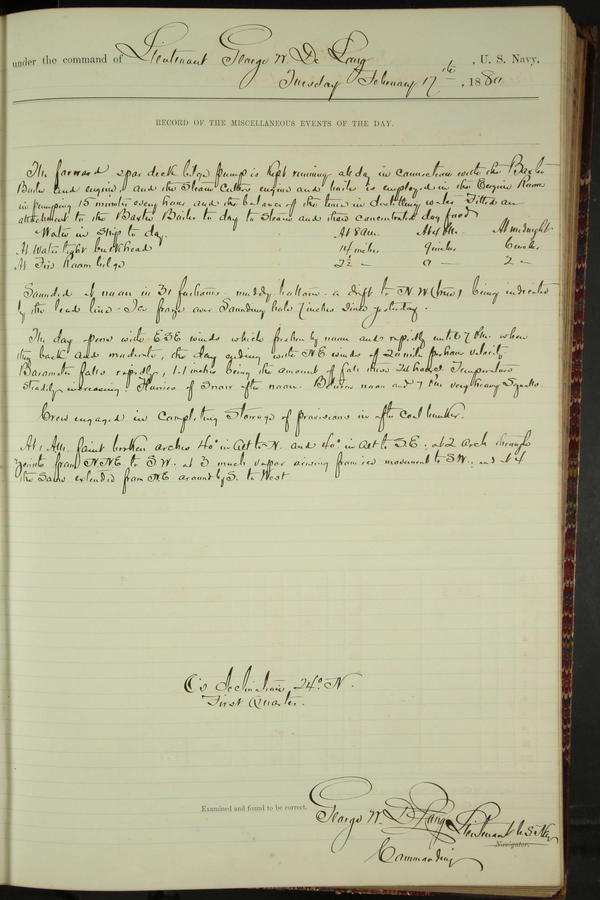 under the command of Lieutenant George W. De Long, U. S. Navy.
Tuesday February 17th, 1880
RECORD OF THE MISCELLANEOUS EVENTS OF THE DAY.
The forward spar deck bilge pump is kept running all day in connection with the Baxter
Boiler and engine, and the Steam Cutters engine and boiler is employed in the Engine Room
in pumping 15 minutes every hour and the balance of the time in distilling water. Fitted an
attachment to the Baxter Boiler to day to Steam and thaw concentrated dog food
Water in Ship to day. At 8 am. At 4 Pm. At midnight.
At Water tight bulkhead 14 inches 9 inches 6 inches
At Fire Room bilge 2½ — — 2 —
Sounded at noon in 31 fathoms - muddy bottom - a drift to N.W (true) being indicated
by the lead line - Ice froze over Sounding hole 7 inches since yesterday.
The day opens with ESE winds which freshen by noon and rapidly until 7 Pm. when
they back and moderate, the day ending with NE winds of 20 miles per hour velocity
Barometer falls rapidly, 1.1 inches being the amount of fall these 24 hours. Temperature
steadily increasing. Flurries of Snow after noon. Between noon and 7 Pm very heavy Squalls.
Crew engaged in completing Stowage of provisions in after coal bunker.
At 1 Am. faint broken arches 40° in alt to N. and 40° in alt to S.E. at 2 arch through
zenith from NNE to S.W. at 3 much vapor arising from ice movement to SW. and at 4
the Same extended from N.E around by S. to West
☾'s declination 24° N.
First Quarter.
Examined and found to be correct.
George W. De Long Lieutenant U.S. Navy
Navigator.
Commanding